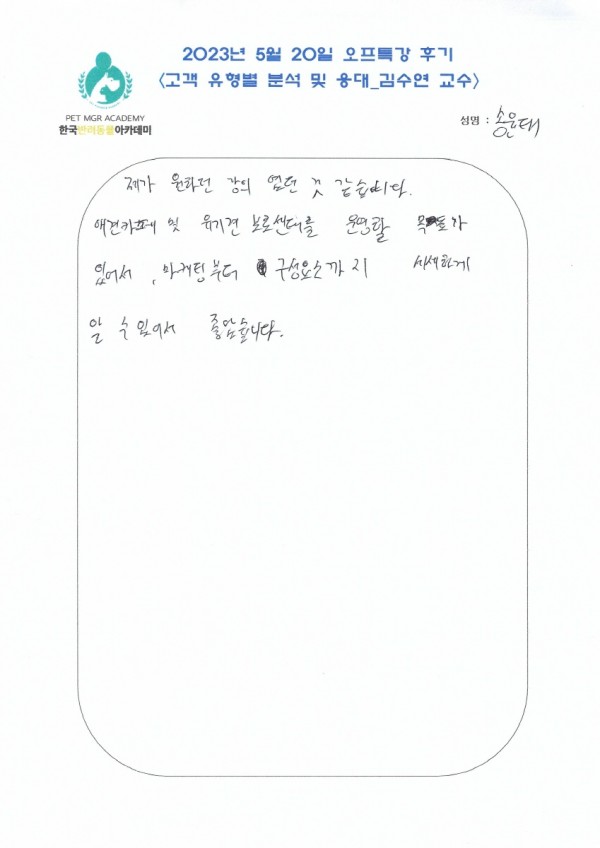 2023년 5월 20일 오프특강 후기
<고객 유형별 분석 및 응대_김수연 교수>
PET MGR ACADEMY
한국반려동물아카데미
성명 : 송윤대
제가 원하던 강의 였던 것 같습니다.
애견카페 및 유기견 보호센터를 운영할 목표가
있어서, 마케팅부터 구성요소까지 세세하게
알 수 있어서 좋았습니다.